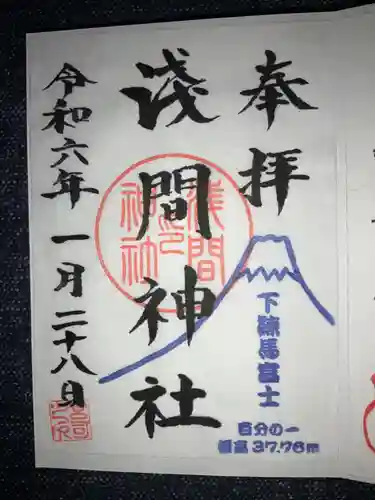 奉拝
下練馬富士
百分の一
標高37.76m
浅間神社
浅間神社之印
令和六年一月二十八日